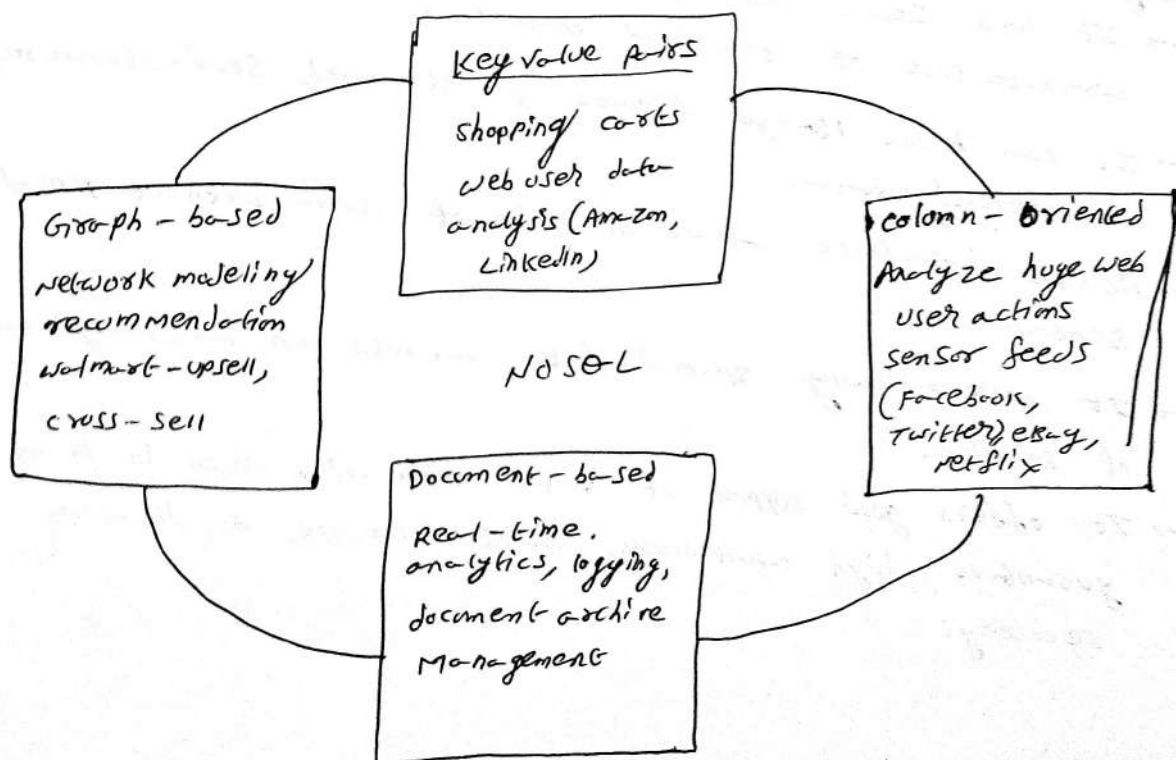 Key value pairs
shopping carts
web user data
analysis (Amazon,
LinkedIn)
Graph-based
Network modeling/
recommendation
walmart-upsell,
cross-sell
NOSQL
column-oriented
Analyze huge web
user actions
sensor feeds
(Facebook,
Twitter), eBay,
netflix
Document-based
Real-time.
analytics, logging,
document archive
Management